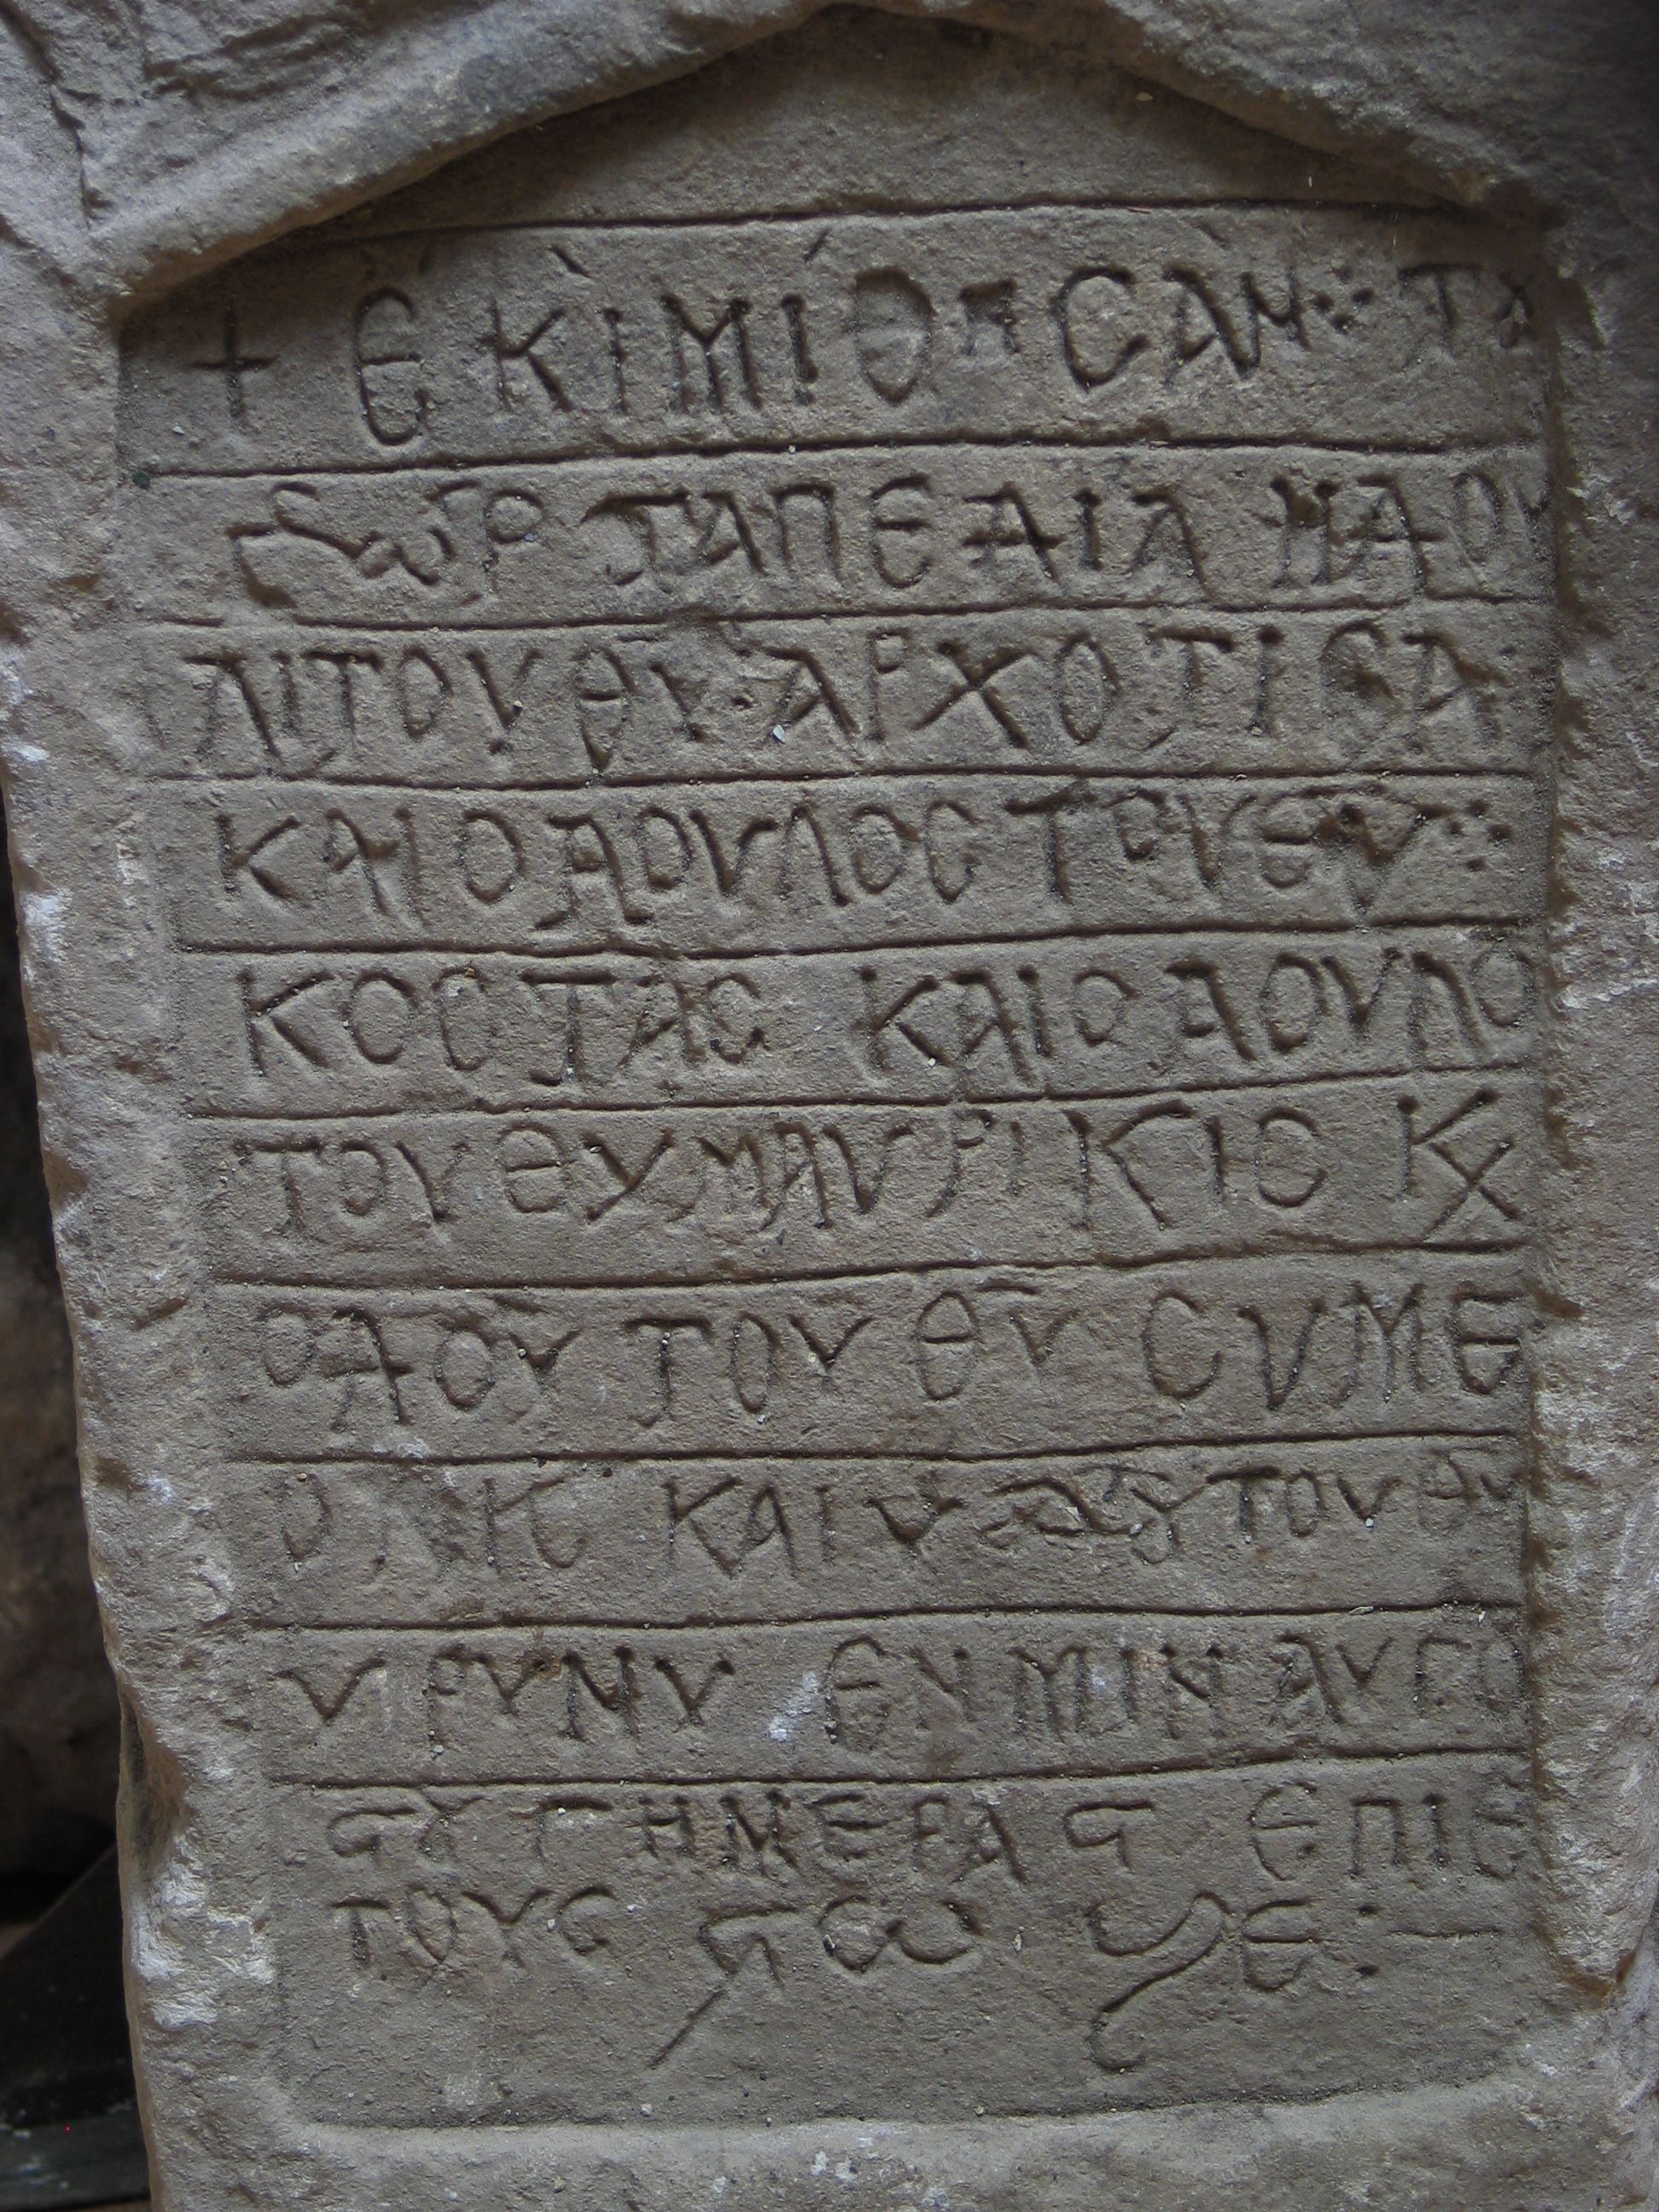 + ΕΚΙΜΙΘΠCΑΝ ΤΑ
ΤΑΠΕΔΙΑ ΗΔΟΥ
ΛΙΤΟΥΘΥ·ΑΡΧΟΤΙCΑ
ΚΑΙΟΔΟΥΛΟC ΤΟΥΘΥ
ΚΟCΤΑC ΚΑΙΟΔΟΥΛΟ
ΤΟΥΘΥΜΑΥΡΙΚΙΟ Κ
ΟΔΟΥ ΤΟΥ ΘΥ CΥΜΕ
ΟΝΚ ΚΑΙΥ ΤΟΥΘΥ
ΥΙΡΥΝΥ ΕΝΜΙΝΙ ΑΥΓΟ
ϚΥ Γ ΗΜΕΡΑ Ϛ ΕΠΙΕ
ΤΟΥC ϚΩϞΕ:—